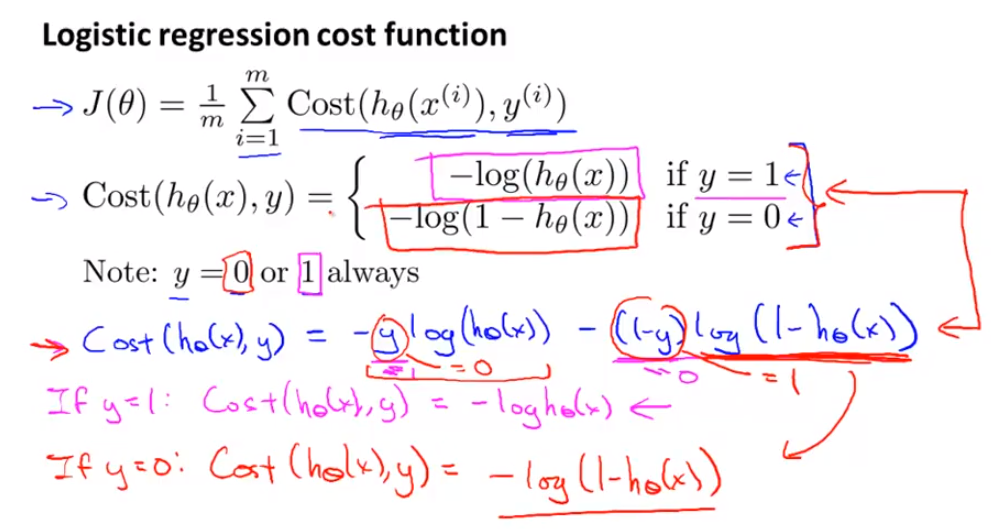 Logistic regression cost function
→ J(θ) = 1/m ∑_{i=1}^{m} Cost(h_θ(x^{(i)}), y^{(i)})
→ Cost(h_θ(x), y) = { −log(h_θ(x)) if y = 1 ←
−log(1 − h_θ(x)) if y = 0 ←
Note: y = 0 or 1 always
→ Cost(h_θ(x), y) = −y log(h_θ(x)) − (1−y) log(1−h_θ(x)) ←
=1 =0 =0 =1
If y=1: Cost(h_θ(x), y) = −log h_θ(x) ←
If y=0: Cost(h_θ(x), y) = −log(1−h_θ(x))